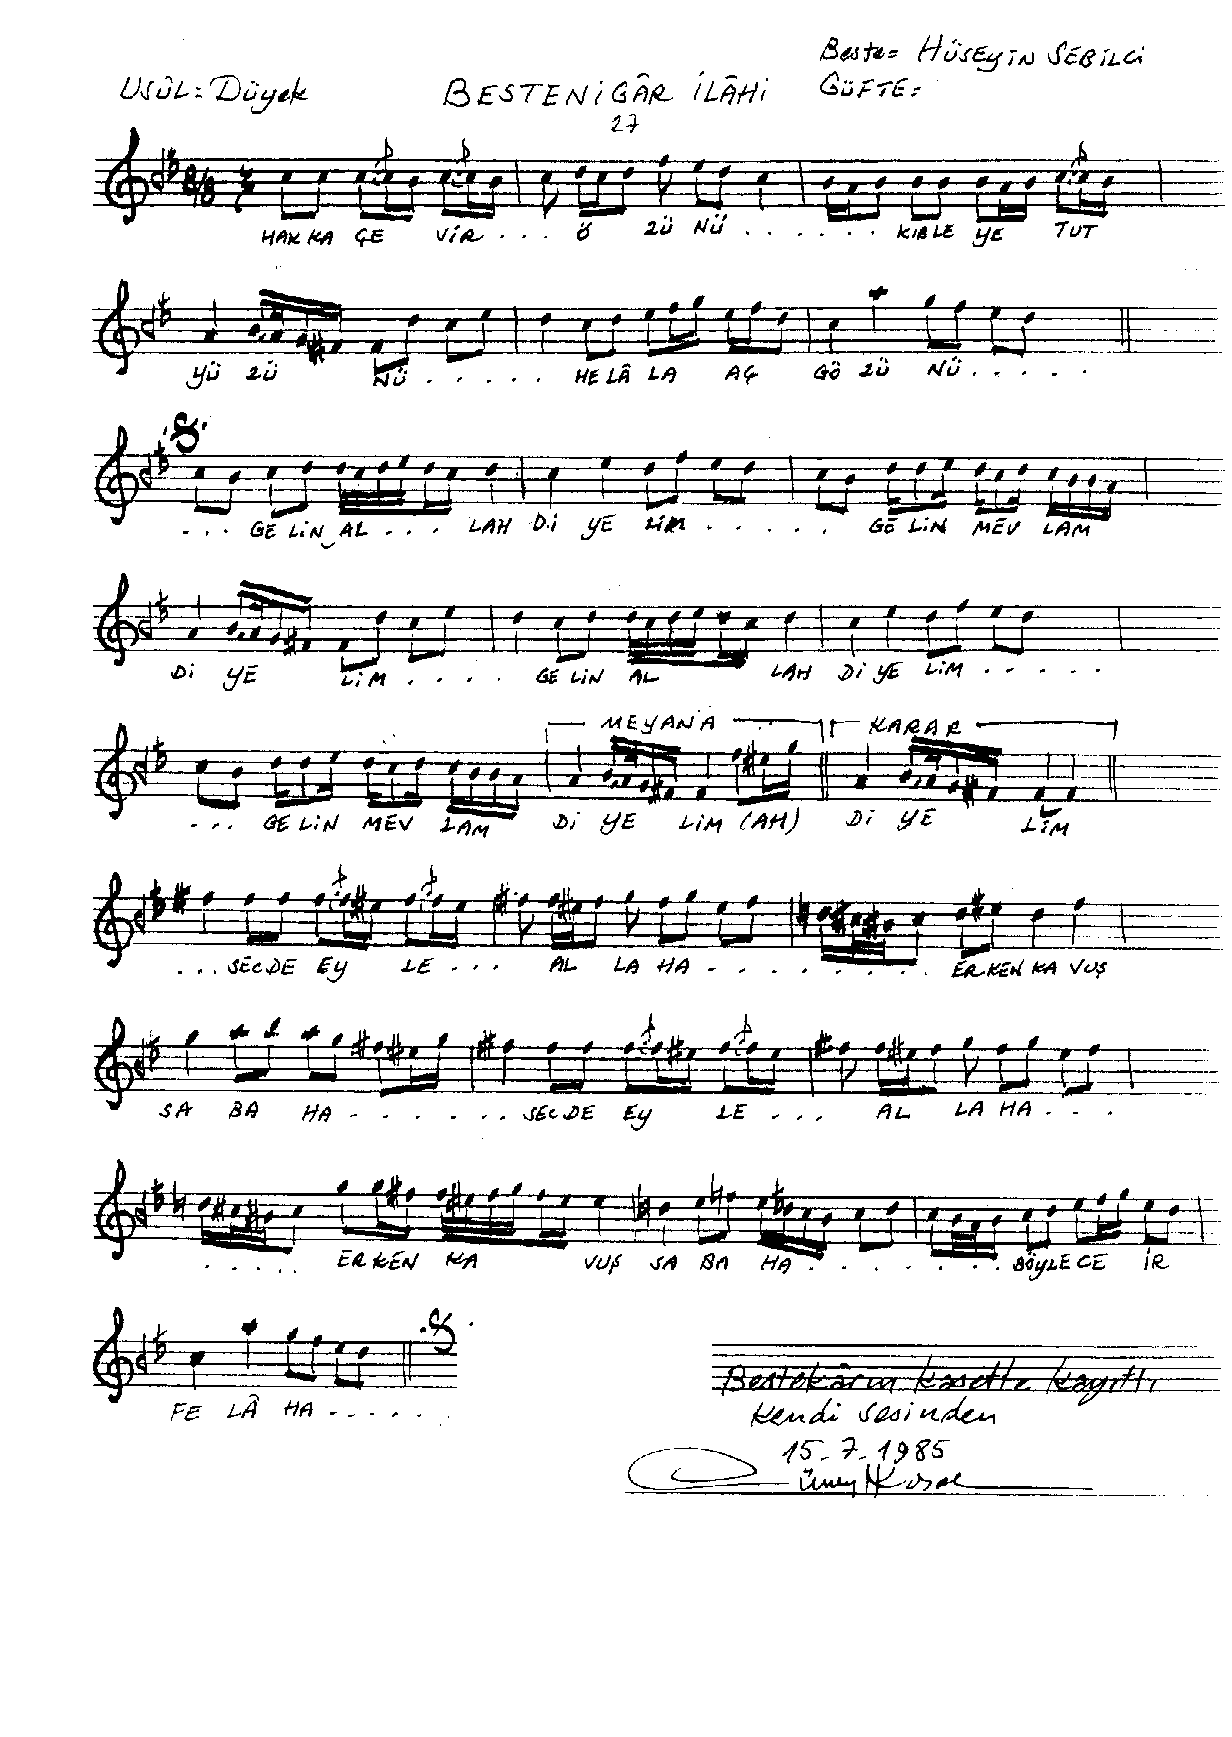 Beste= HÜSEYİN SEBİLCİ
USÛL: Düyek BESTENİGÂR İLÂHİ GÜFTE:
27
8/8
HAK KA ÇE VİR . . . Ö ZÜ NÜ . . . . . . KIBLE YE TUT
YÜ ZÜ NÜ . . . . . HE LÂ LA AÇ GÖ ZÜ NÜ . . . . .
. . . GE LİN AL . . . LAH Dİ YE LİM . . . . . GE LİN MEV LAM
Dİ YE LİM . . . . GE LİN AL LAH Dİ YE LİM . . . . .
MEYANA KARAR
. . . GE LİN MEV LAM Dİ YE LİM (AH) Dİ YE LİM
. . . SECDE EY LE . . . AL LA HA . . . . . . . ERKEN KA VUŞ
SA BA HA . . . . . . SECDE EY LE . . . AL LA HA . . .
. . . . . ERKEN KA VUŞ SA BA HA . . . . . . . BÖYLECE İR
FE LÂ HA . . . . . .
Bestekârın kasette kayıtlı
kendi sesinden
15.7.1985